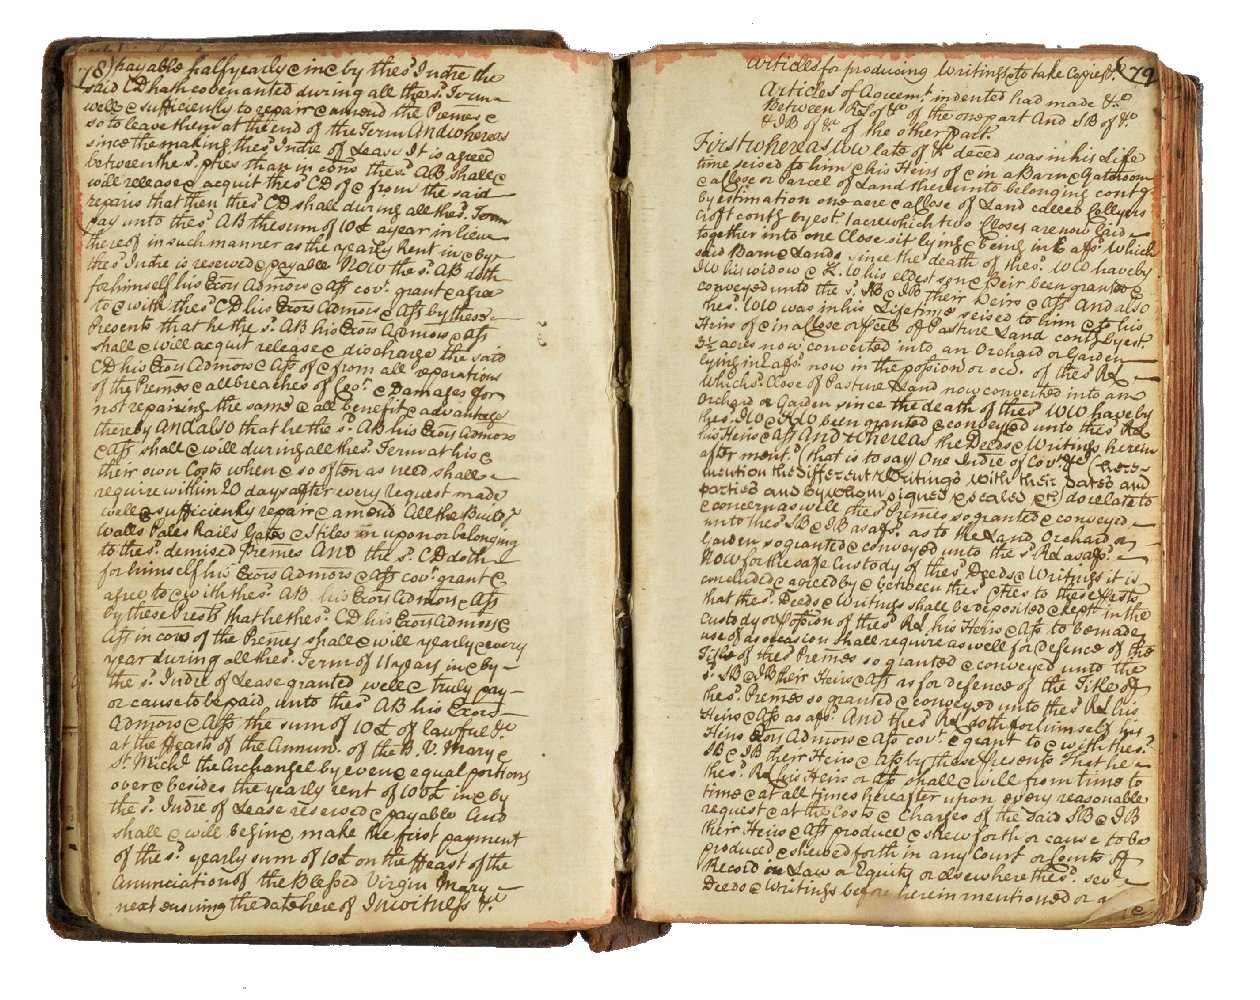 78) payable halfyearly & in & by the sd. Indre the
said CD hath covenanted during all the sd. Term
well & sufficiently to repair & amend the Premes &
so to leave them at the end of the Term And whereas
since the making the sd. Indre of Lease It is agreed
between the sd. pties that in cons the sd. AB shall &
will release & acquit the sd. CD of & from the said
repairs that then the sd. CD shall during all the sd. Term
pay unto the sd. AB the sum of 10£ a year in lieu
thereof in such manner as the yearly Rent in & by
the sd. Indre is reserved & payable Now the sd. AB doth
for himself his Exors Admors & Ass covt. grant & agree
to & with the sd. CD his Exors Admors & Ass by these
Presents that he the sd. AB his Exors Admors & Ass
shall & will acquit release & discharge the said
CD his Exors Admors & Ass of & from all reparations
of the Premes & all breaches of Covt. & Damages for
not repairing the same & all benefit & advantage
thereby And also that he the sd. AB his Exors Admors
& Ass shall & will during all the sd. Term at his &
their own Costs when & so often as need shall
require within 20 days after every request made
well & sufficiently repair & amend All the Buildgs
Walls Pales Rails Gates & Stiles in upon or belonging
to the sd. demised Premes And the sd. CD doth
for himself his Exors Admors & Ass covt. grant &
agree to & with the sd. AB his Exors Admors & Ass
by these Prests that he the sd. CD his Exors Admors &
Ass in cons of the Premes shall & will yearly & every
year during all the sd. Term of 11 years in & by
the sd. Indre of Lease granted well & truly pay
or cause to be paid unto the sd. AB his Exors
Admors & Ass the sum of 10£ of lawful &c
at the Feasts of the Annun. of the B. V. Mary &
St. Michl. the Archangel by even & equal portions
over & besides the yearly rent of 100£ in & by
the sd. Indre of Lease reserved & payable And
shall & will begin & make the first payment
of the sd. yearly sum of 10£ on the Feast of the
Anunciation of the Blessed Virgin Mary
next ensuing the date hereof In witness &c
Articles for producing Writings, to take Copies &c. (79
Articles of Agreemt. indented had made &c
Between RL of &c of the one part And SB of &c
& IB of &c of the other part.
First whereas WW late of &c deced was in his Life
time seised to him & his Heirs of & in a Barn & Gateroom
& a Close or Parcel of Land thereunto belonging contg.
by estimation one acre & a Close of Land called Collyers
Croft contg by est. 1 acre which two Closes are now laid
together into one Close sit lying & being in &c afsd. Which
said Barn & Lands since the death of the sd. WW have by
IW his widow & K.W his eldest son & Heir been granted &
conveyed unto the sd. SB & IB their Heirs & Ass And also
the sd. WW was in his Lifetime seised to him & to his
Heirs of & in a Close or Piece of Pasture Land contg by est.
3½ acres now converted into an Orchard or Garden
lying in &c afsd. now in the possion or occ. of the sd. RL
Which sd. Close of Pasture Land now converted into an
Orchard or Garden since the death of the sd. WW have by
the sd. IW & KW been granted & conveyed unto the sd. RL
his Heirs & Ass And whereas the Deeds & Writings herein
after ment. (that is to say) One Indre of Covt. &c (here
mention the different Writings with their Dates and
parties and by whom signed & sealed &c) do relate to
& concern as well the sd. Premes so granted & conveyed
unto the sd. SB & IB as afsd. as to the Land Orchard or
Garden so granted & conveyed unto the sd. RL as afsd.
Now for the safe Custody of the sd. Deeds & Writings it is
concluded & agreed by & between the sd. Pties to these Prests
that the sd. Deeds & Writings shall be deposited & kept in the
custody or possion of the sd. RL his Heirs & Ass to be made
use of as occasion shall require as well for Defence of the
Title of the sd. Premes so granted & conveyed unto the
sd. SB & IB their Heirs & Ass as for defence of the Title of
the sd. Premes so granted & conveyed unto the sd. RL his
Heirs & Ass as afsd. And the sd. RL doth for himself his
Heirs Exors Admors & Ass covt. & grant to & with the sd.
SB & IB their Heirs & Ass by these Presents That he
the sd. RL his Heirs or Ass shall & will from time to
time & at all times hereafter upon every reasonable
request & at the Costs & Charges of the said SB & IB
their Heirs & Ass produce & shew forth or cause to be
produced & shewed forth in any Court or Courts of
Record in Law or Equity or elsewhere the sd. sevl.
Deeds & Writings before herein mentioned or a